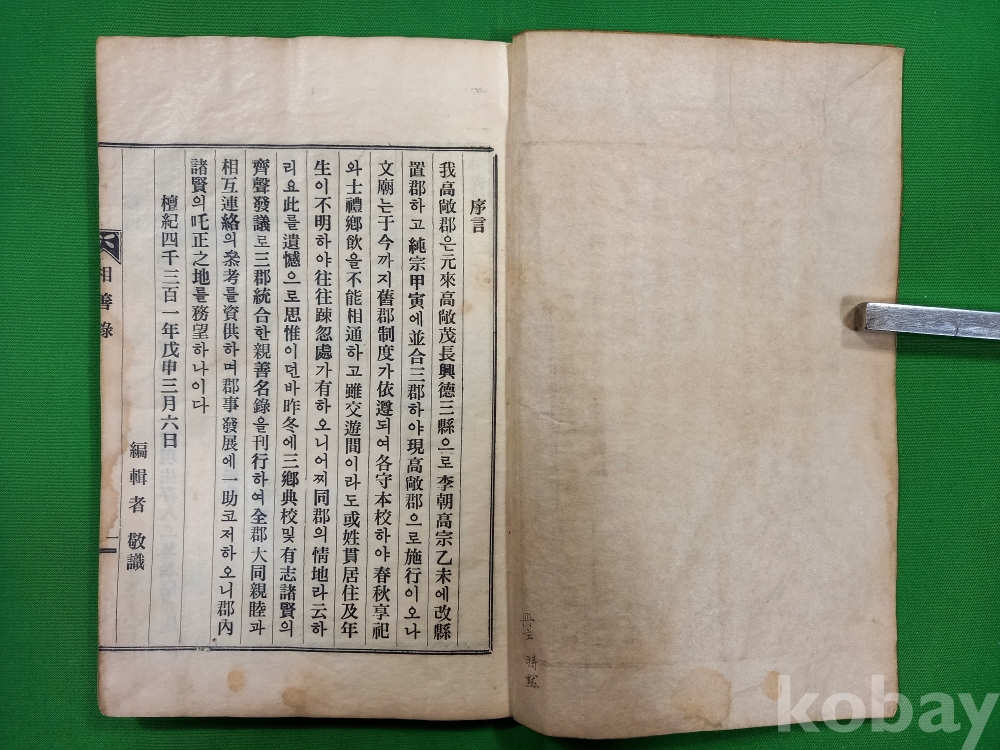 序言
我高敞郡은元來高敞茂長興德三縣으로李朝高宗乙未에改縣
置郡하고純宗甲寅에並合三郡하야現高敞郡으로施行이오나
文廟는于今까지舊郡制度가依遵되여各守本校하야春秋享祀
와士禮鄉飮을不能相通하고雖交遊間이라도或姓貫居住及年
生이不明하야往往踈忽處가有하오니어찌同郡의情地라云하
리요此를遺憾으로思惟이던바昨冬에三鄕典校및有志諸賢의
齊聲發議로三郡統合한親善名錄을刊行하여全郡大同親睦과
相互連絡의叅考를資供하며郡事發展에一助코저하오니郡內
諸賢의吒正之地를務望하나이다
檀紀四千三百一年戊申三月六日
編輯者 敬識
相善錄
一
冊主 時㷡
kobay